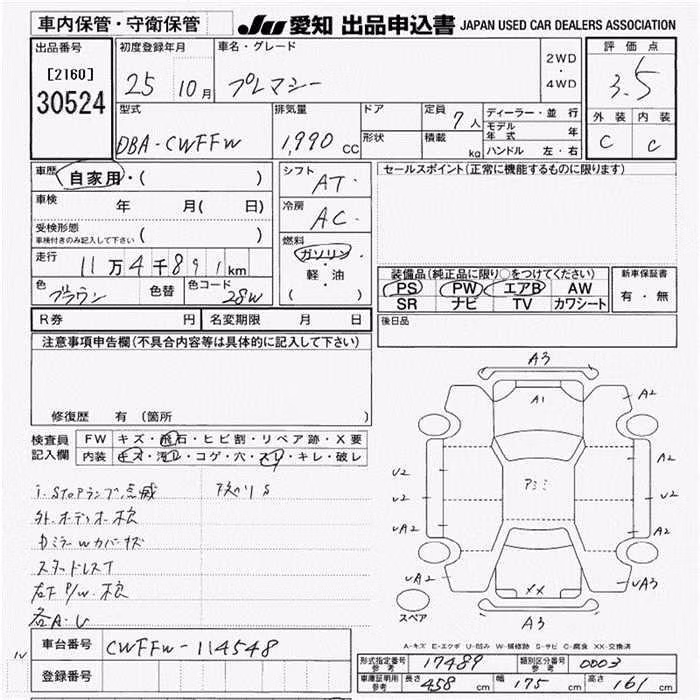 車内保管・守衛保管
JU 愛知 出品申込書 JAPAN USED CAR DEALERS ASSOCIATION
出品番号 初度登録年月 車名・グレード 2WD・4WD 評価点
[2160] 25 10月 プレマシー 3.5
30524
型式 排気量 ドア 定員 7人 ディーラー・並行 外装 内装
DBA-CWFFW 1,990 CC 形状 積載 kg モデル年式 年 C C
ハンドル 左・右
車歴 自家用・( ) シフト AT・ セールスポイント(正常に機能するものに限ります)
車検 年 月( 日) 冷房 AC・
受検形態 車検付きのみ記入して下さい ( )
燃料 ガソリン・軽・油 ( )
走行 11万4千891km
色 ブラウン 色替 色コード 28W
装備品(純正品に限り○をつけてください) 新車保証書
PS PW エアB AW 有・無
SR ナビ TV カワシート
R券 円 名変期限 月 日 後日品
注意事項申告欄(不具合内容等は具体的に記入して下さい)
修復歴 有(箇所 )
検査員記入欄 FW キズ・飛石・ヒビ割・リペア跡・X要
内装 キズ・汚レ・コゲ・穴・スレ・キレ・破レ
外.オーディオ.欠
DミラーWカバーキズ
スタッドレスT
各A.U
A3
A1
A2
A2
U2
U2
UA2
UA2
A2
A2
UA3
XX
A3
スペア
A-キズ E-エクボ U-凹み W-補修跡 S-サビ C-腐食 XX-交換済
車台番号 CWFFW-114548
登録番号
形式指定番号 参考 17489 類別区分番号 参考 0003
車庫証明用 参考 長さ 458 cm 幅 175 cm 高さ 161 cm